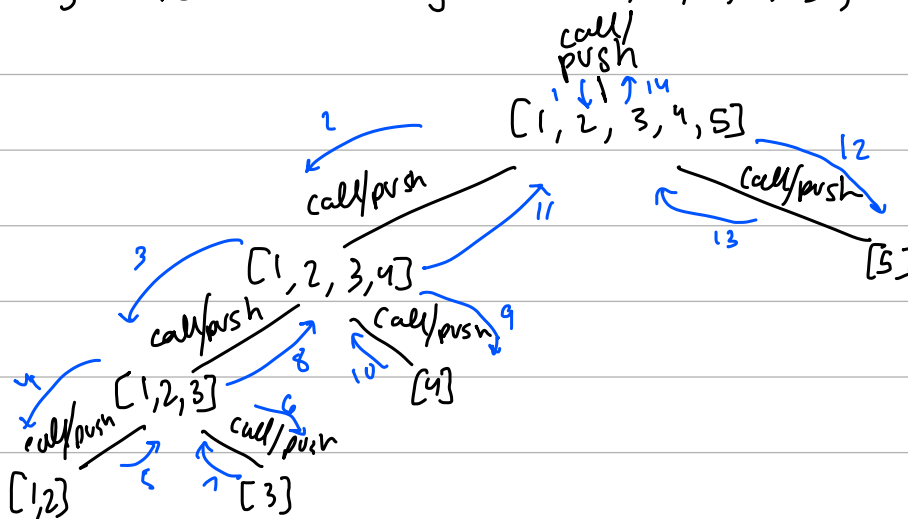 call/
push
1 14
[1, 2, 3, 4, 5]
2
12
call/push
call/push
11
13
3
[1, 2, 3, 4]
[5]
call/push
call/push
9
8
10
4
[1, 2, 3]
[4]
6
call/push
call/push
5
7
[1,2]
[3]